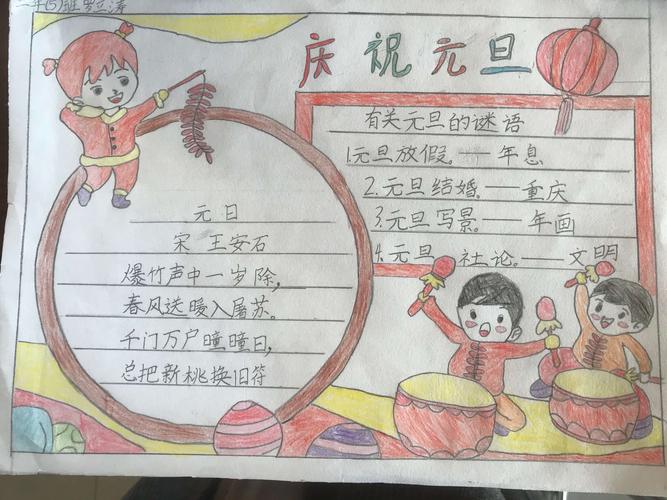 二年(5)班罗立涛
庆祝元旦
元日
宋 王安石
爆竹声中一岁除,
春风送暖入屠苏。
千门万户曈曈日,
总把新桃换旧符
有关元旦的谜语
1.元旦放假。——年息
2.元旦结婚。——重庆
3.元旦写景。——年画
4.元旦 社论。——文明